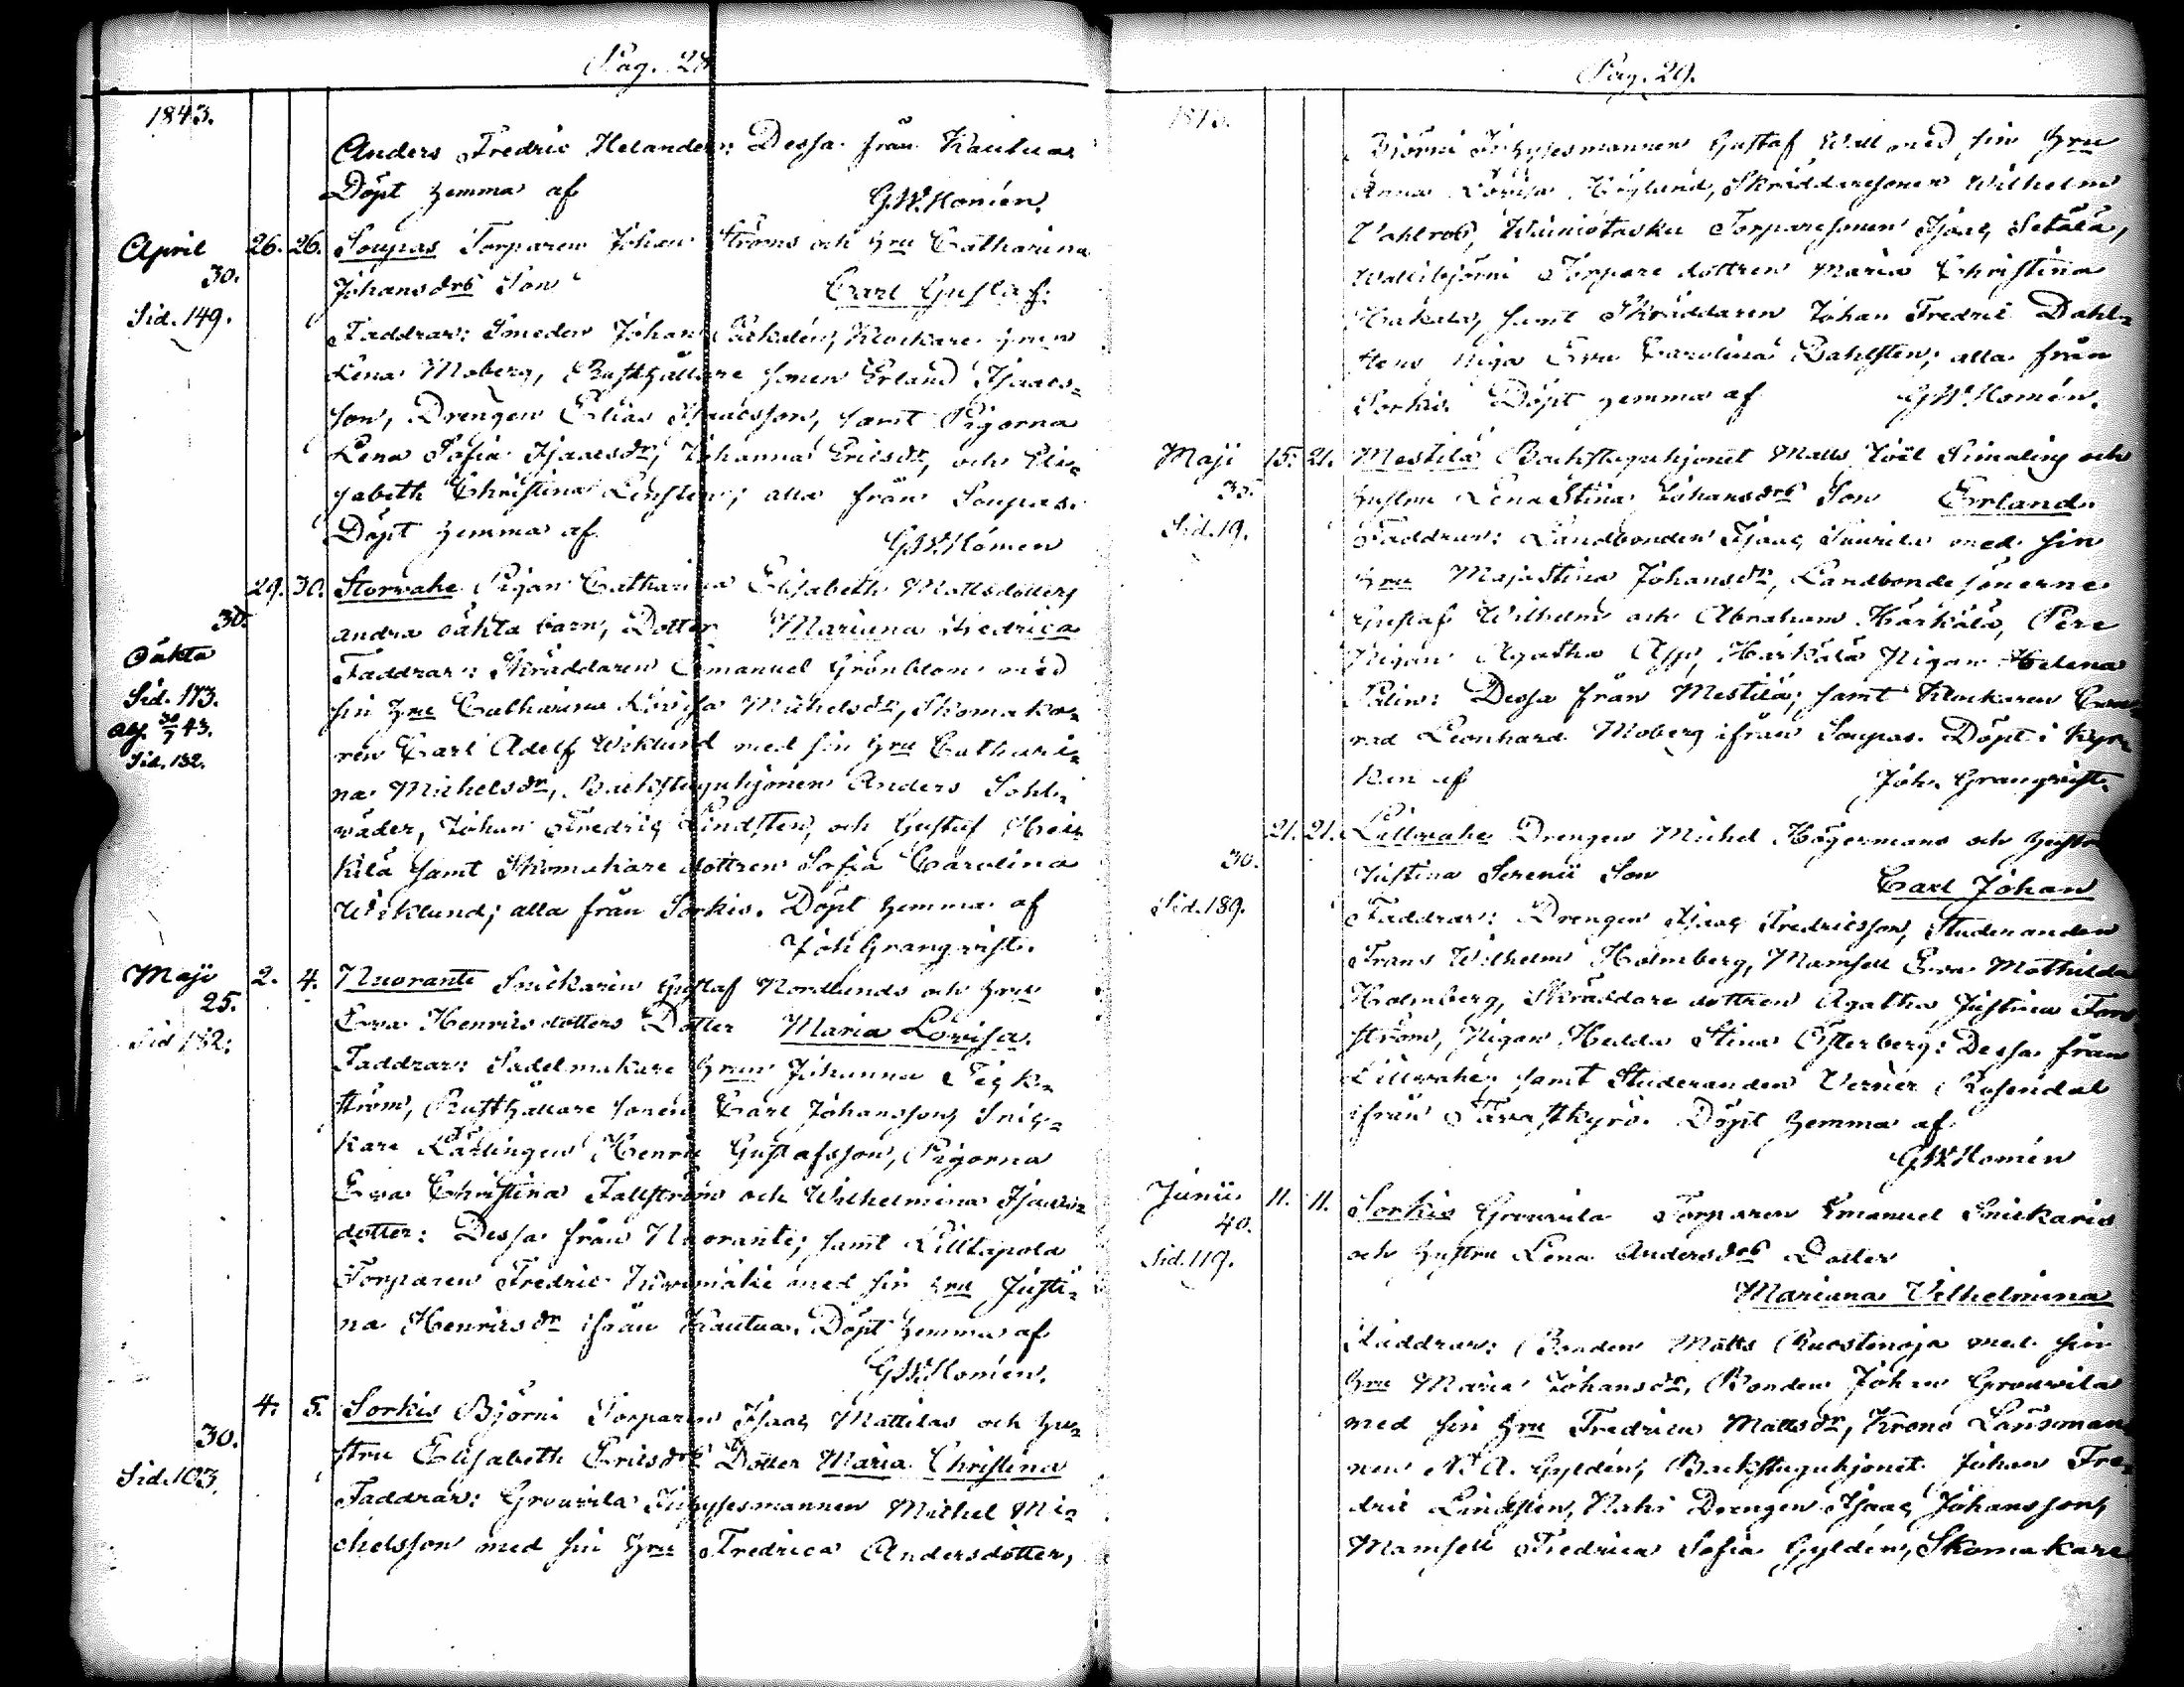 Pag. 28
1843.
Anders Fredric Helander: Dessa från Kautua
Döpt hemma af G.W. Homén.
April 30. Sid. 149. 26. 26. Soupas Torparen Johan Ströms och hru Catharina
Johansdrs Son Carl Gustaf.
Faddrar: Smeden Johan Klockare
Lena Moberg, Rusthållare sonen Erland Isaacs-
son, Drengen Elias Isaacsson, samt Pigorna
Lena Sofia Isaacsdr, Johanna Ericsdr, och Eli-
sabeth Christina; alla från Soupas.
Döpt hemma af G.W. Homén
30. Oäkta Sid. 173. 30/7 43. Sid. 132. 29. 30. Storvahe Pigan Catharina Elisabeth Mattsdotters
andra oäkta barn, Dotter Mariana Fredrica
Faddrar: Skräddaren Emanuel Grönblom med
sin hru Catharina Lovisa Michelsdr, Skomaka-
ren Carl Adolf Wiklund med sin hru Cathari-
na Michelsdr, Backstuguhjonen Anders Sohl-
väder, Johan Fredric Lindsten, och Gustaf Hei-
kilä samt Skomakare dottren Sofia Carolina
Wiklund; alla från Sorkis. Döpt hemma af
Joh Granqvist.
Maji 25. Sid 132. 2. 4. Nuoranti Snickaren Gustaf Nordlunds och hru
Eva Henricsdotters Dotter Maria Lovisa.
Faddrar: Sadelmakare hrun Johanna
ström, Rusthållare sonen Carl Johansson, Snic-
kare Lärlingen Henric Gustafsson, Pigorna
Eva Christina Fallström och Wilhelmina Isaacs-
dotter: Dessa från Nuoranti; samt Lilltapola
Torparen Fredric med sin hru Justi-
na Henricsdr ifrån Kautua. Döpt hemma af
G.W. Homén.
30. Sid. 103. 4. 5. Sorkis Björni Torparen Isaac Mattilas och hu-
stru Elisabeth Ericsdrs Dotter Maria Christina
Faddrar: Grouvila Inhysesmannen Michel Mi-
chelsson med sin hru Fredrica Andersdotter,
Pag. 29.
1843.
Björni Inhysesmannen Gustaf Wall med sin hru
Anna Lovisa Höglund, Skräddaresonen Wilhelm
Wahlros, Torparesonen Isaac Setälä,
Torpare dottren Maria Christina
samt Skräddaren Johan Fredric Dahl-
stens Piga Eva Carolina Dahlsten; alla från
Sorkis. Döpt hemma af G.W. Homén.
Maji 30. Sid. 19. 15. 21. Mestilä Backstuguhjonet Matts Joël Simelius och
hustru Lena Stina Johansdrs Son Erland.
Faddrar: Landbonden Isaac Saurila med sin
hru Maja Stina Johansdr, Landbonde sönerne
Gustaf Wilhelm och Abraham Härkälä, Pere
Pigan Agatha App, Härkälä Pigan Helena
Palin: Dessa från Mestilä; samt Klockaren Con-
rad Leonhard Moberg ifrån Soupas. Döpt i Kyr-
kan af Joh. Granqvist.
30. Sid. 189. 21. 21. Lillvahe Drengen Michel Högermans och hustru
Justina Serenii Son Carl Johan
Faddrar: Drengen Isaac Fredricsson, Studeranden
Frans Wilhelm Holmberg, Mamsell Eva Mathilda
Holmberg, Skräddare dottren Agatha Justina
ström, Pigan Hedda Stina Österberg: Dessa från
Lillvahe; samt Studeranden Verner Rosendal
ifrån Tavastkyrö. Döpt hemma af
G.W. Homén
Junii 40. Sid. 119. 11. 11. Sorkis Grouvila Torparen Emanuel Snickaris
och hustru Lena Andersdrs Dotter
Mariana Vilhelmina
Faddrar: Bonden Matts Ruostinoja med sin
hru Maria Johansdr, Bonden Johan Grouvila
med sin hru Fredrica Mattsdr, Krono Länsman-
nen N. A. Gyldén, Backstuguhjonet Johan Fre-
dric Lindsten, Drengen Isaac Johansson,
Mamsell Fredrica Sofia Gyldén, Skomakare